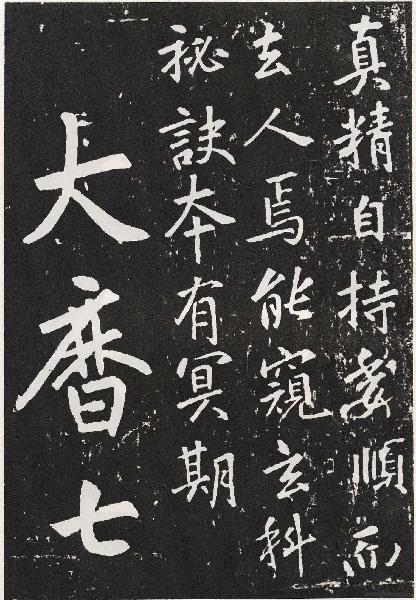 真精自持委順而
去人焉能窺玄科
祕訣本有冥期
大曆七